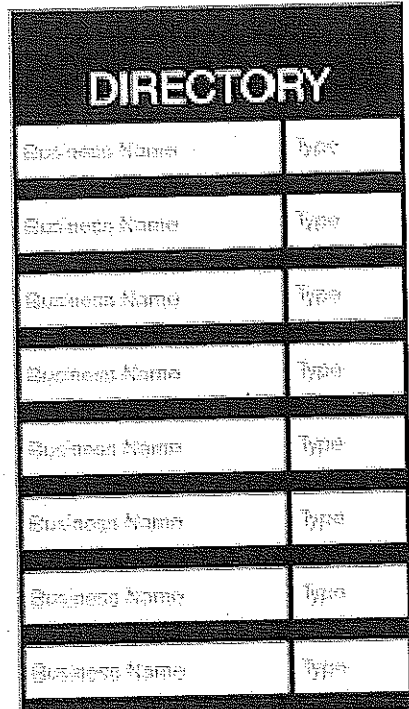 DIRECTORY
Business Name Type
Business Name Type
Business Name Type
Business Name Type
Business Name Type
Business Name Type
Business Name Type
Business Name Type